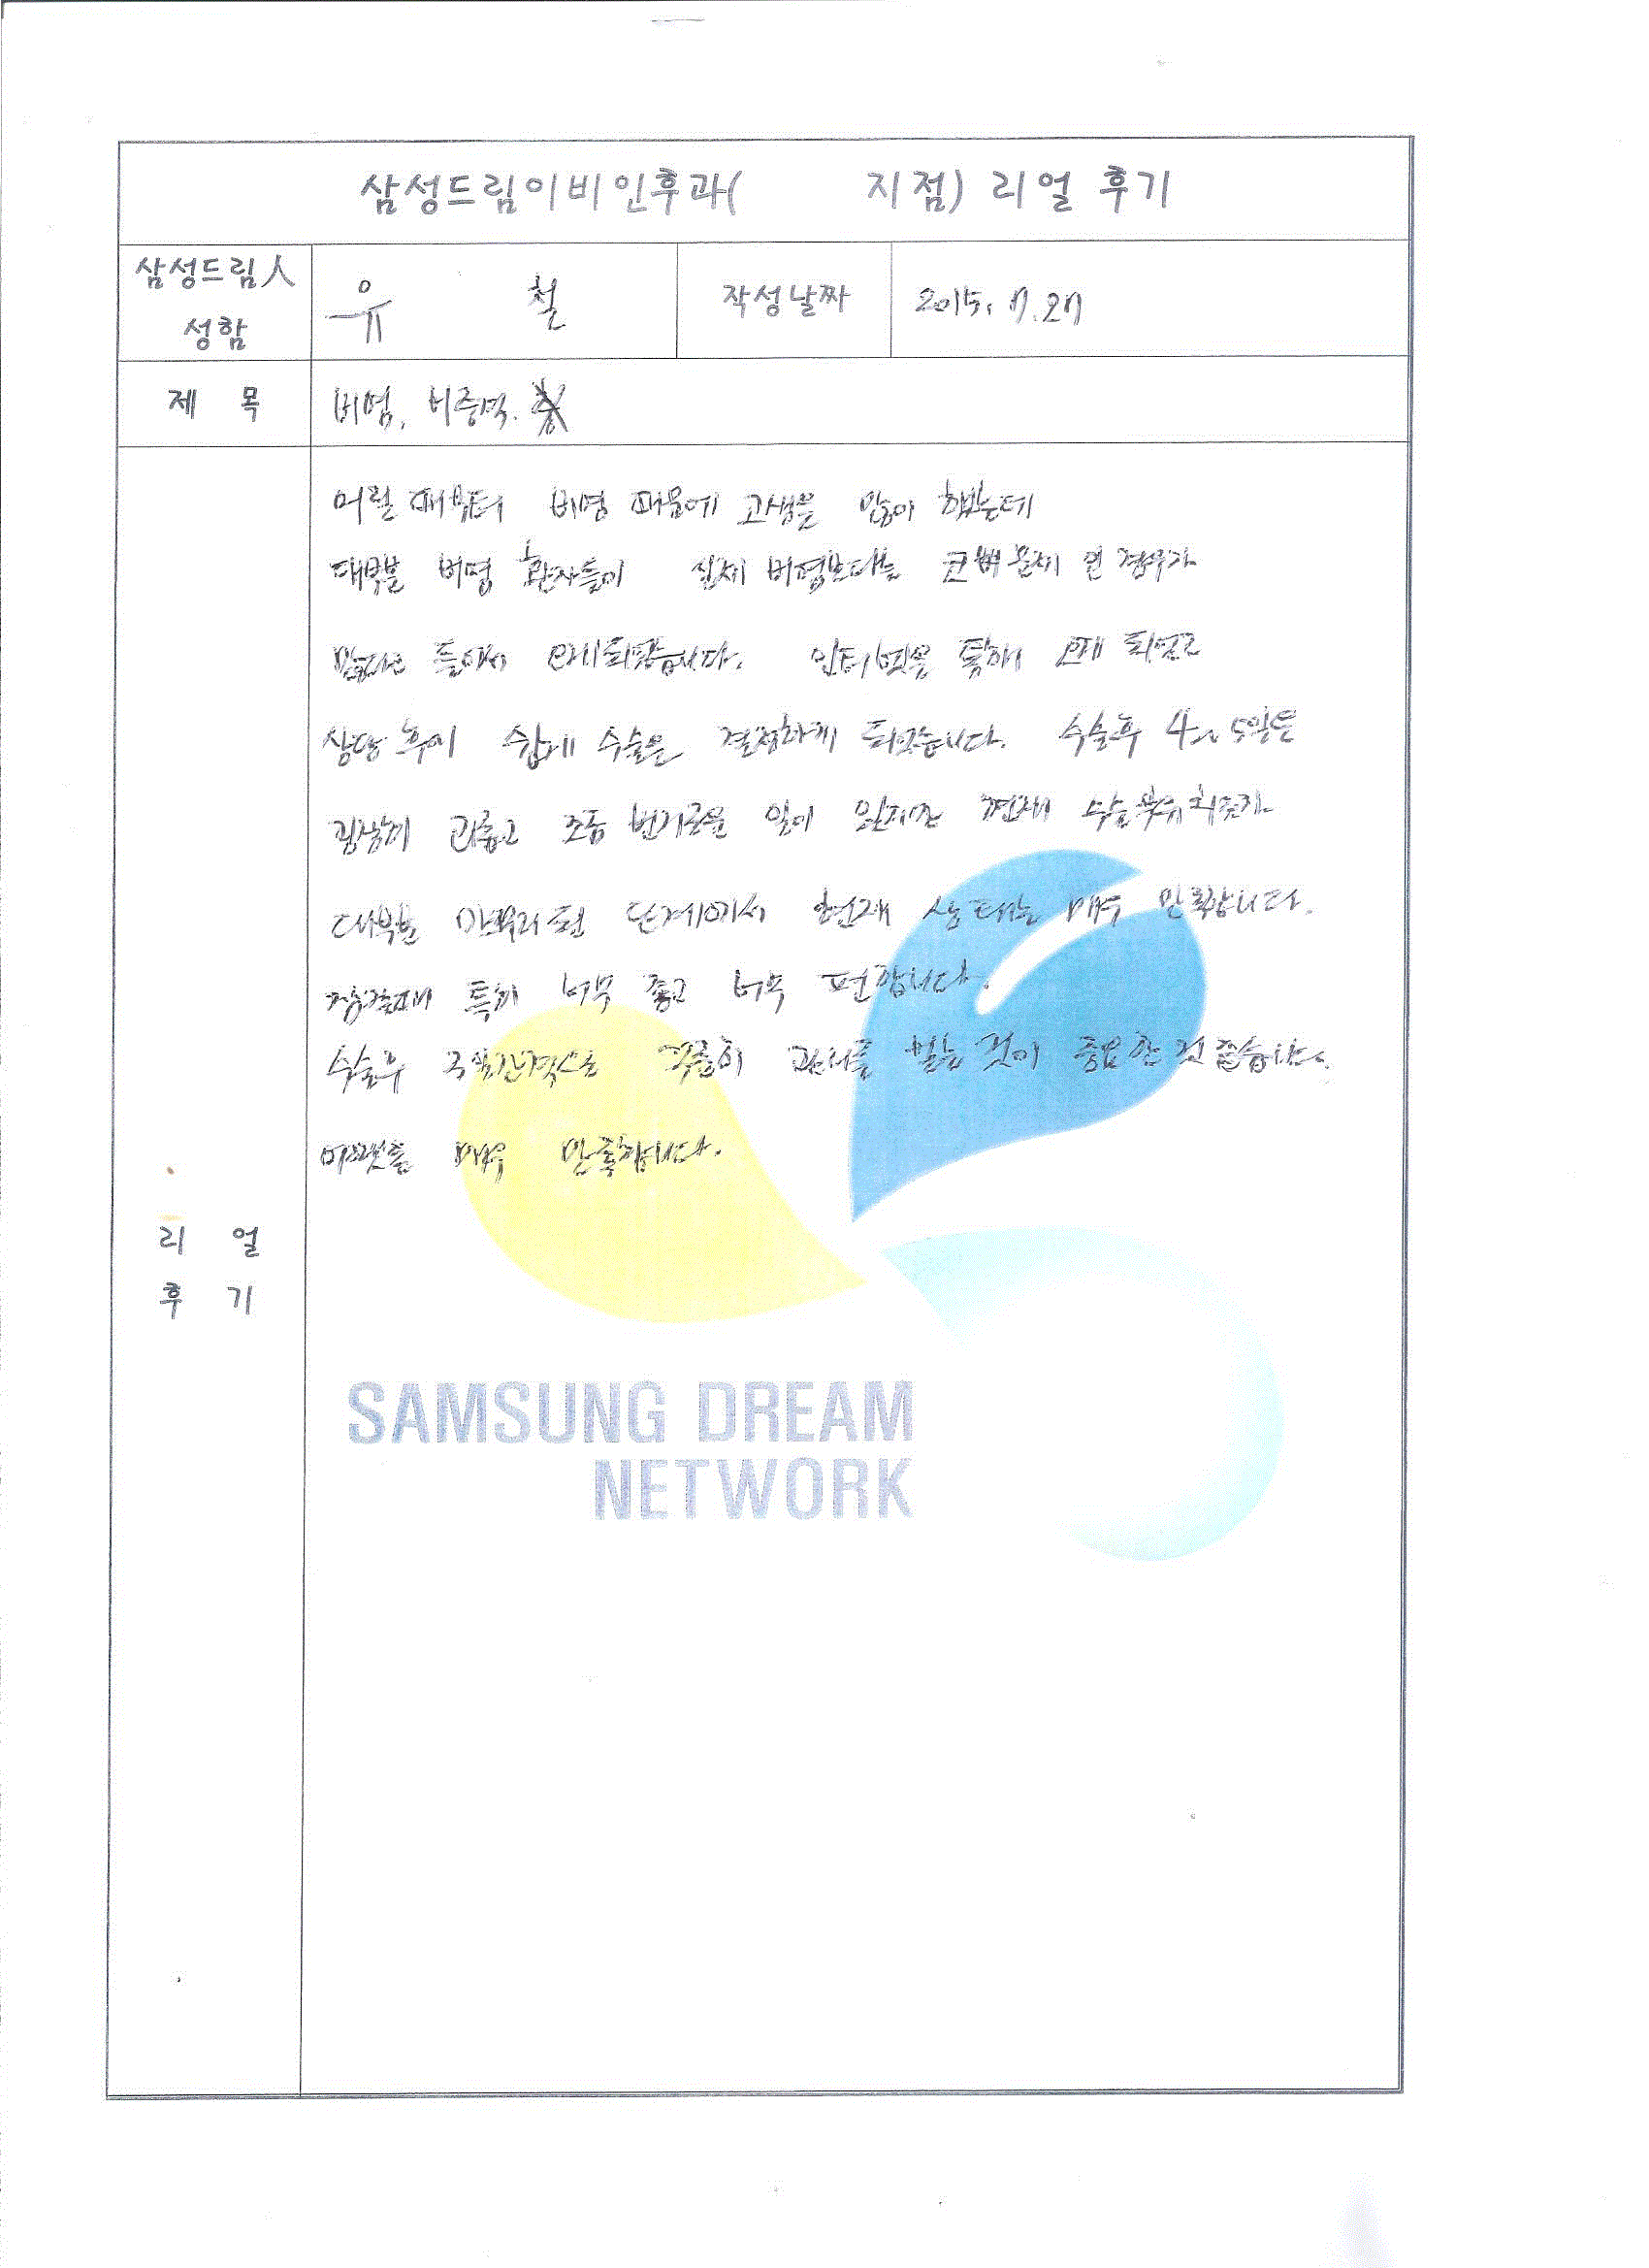 삼성드림이비인후과( 지점) 리얼 후기
삼성드림人 성함
유 철
작성날짜
2015. 7. 27
제 목
비염, 비중격.
어릴 때부터 비염 때문에 고생을 많이 했는데
대부분 비염 환자들이 실제 비염보다는 코뼈 문제 인 경우가
많다고 들어서 오게되었습니다. 인터넷을 통해 오게 되었고
상담 후에 쉽게 수술을 결정하게 되었습니다. 수술후 4~5일은
굉장히 괴롭고 조금 번거로운 일이 있지만 현재 수술부위 치료가
대부분 마무리 된 단계에서 현재 상태는 매우 만족합니다.
잠잘때 특히 너무 좋고 너무 편합니다.
수술후 꾸준히 관리를 받는 것이 중요한 것 같습니다.
어쨌든 매우 만족합니다.
리 얼
후 기
SAMSUNG DREAM
NETWORK